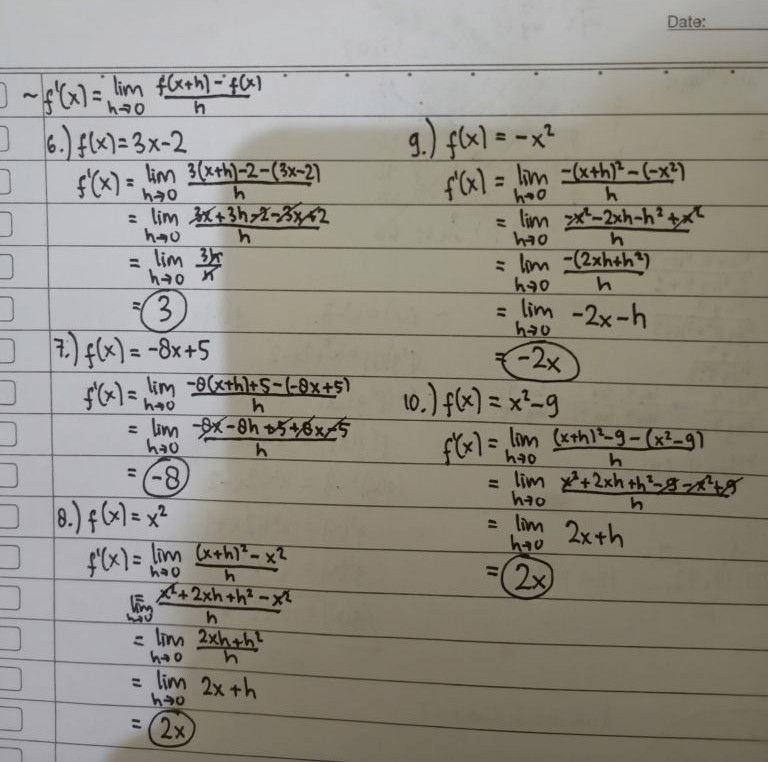 Date:
~ f'(x) = lim h→0 f(x+h) - f(x) / h
6.) f(x) = 3x-2
f'(x) = lim h→0 3(x+h)-2-(3x-2) / h
= lim h→0 3x+3h-2-3x+2 / h
= lim h→0 3h / h
= 3
7.) f(x) = -8x+5
f'(x) = lim h→0 -8(x+h)+5-(-8x+5) / h
= lim h→0 -8x-8h+5+8x-5 / h
= -8
8.) f(x) = x²
f'(x) = lim h→0 (x+h)²-x² / h
= lim h→0 x²+2xh+h²-x² / h
= lim h→0 2xh+h² / h
= lim h→0 2x+h
= 2x
9.) f(x) = -x²
f'(x) = lim h→0 -(x+h)²-(-x²) / h
= lim h→0 -x²-2xh-h²+x² / h
= lim h→0 -(2xh+h²) / h
= lim h→0 -2x-h
= -2x
10.) f(x) = x²-9
f'(x) = lim h→0 (x+h)²-9-(x²-9) / h
= lim h→0 x²+2xh+h²-9-x²+9 / h
= lim h→0 2x+h
= 2x